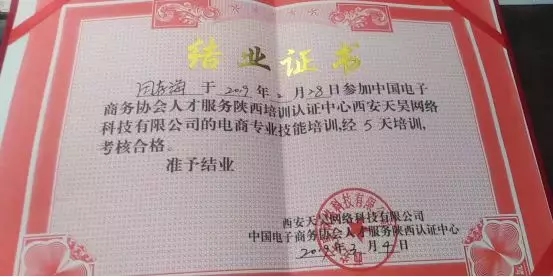 结业证书
于2019年2月28日参加中国电子
商务协会人才服务陕西培训认证中心西安天昊网络
科技有限公司的电商专业技能培训,经5天培训,
考核合格。
准予结业
西安天昊网络科技有限公司
中国电子商务协会人才服务陕西认证中心
2019年3月4日